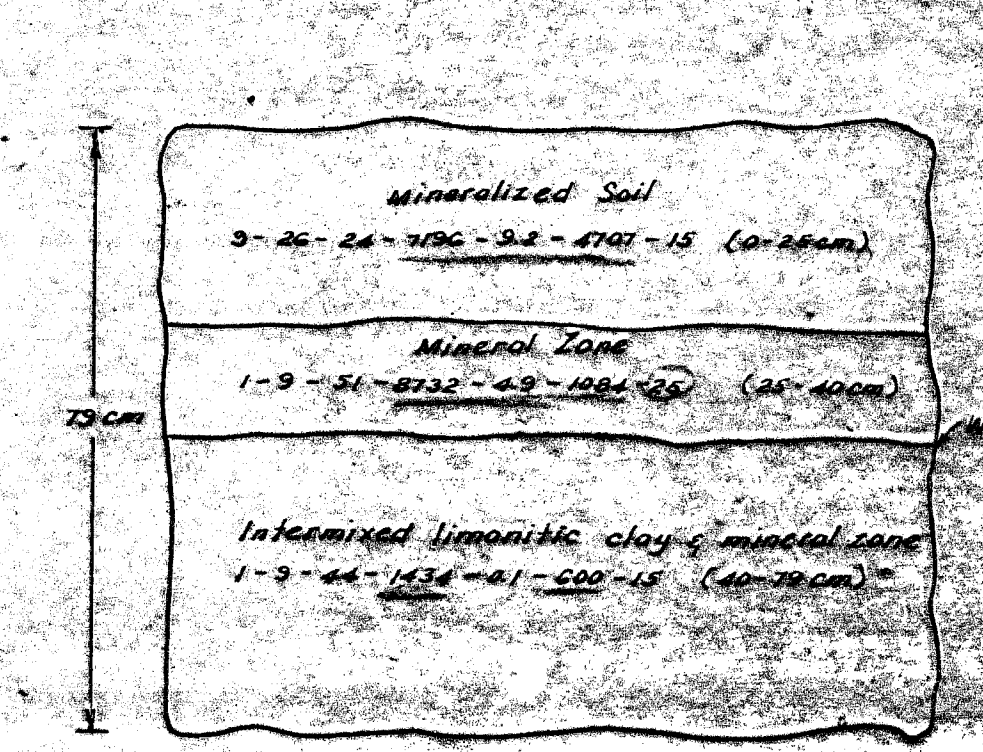 Mineralized Soil
9 - 26 - 24 - 7196 - 9.2 - 4707 - 15 (0-25cm)
Mineral Zone
1 - 9 - 51 - 8732 - 4.9 - 1084 - 25 (25-40cm)
79 cm
Intermixed limonitic clay & mineral zone
1 - 9 - 44 - 1434 - 0.1 - 600 - 15 (40-79 cm) *